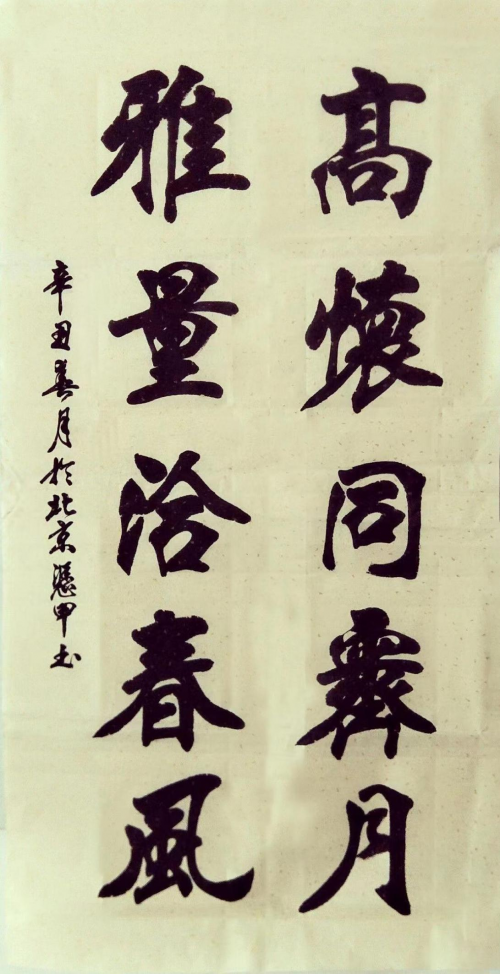 高懷同霽月
雅量洽春風
辛丑春月於北京憑甲玉